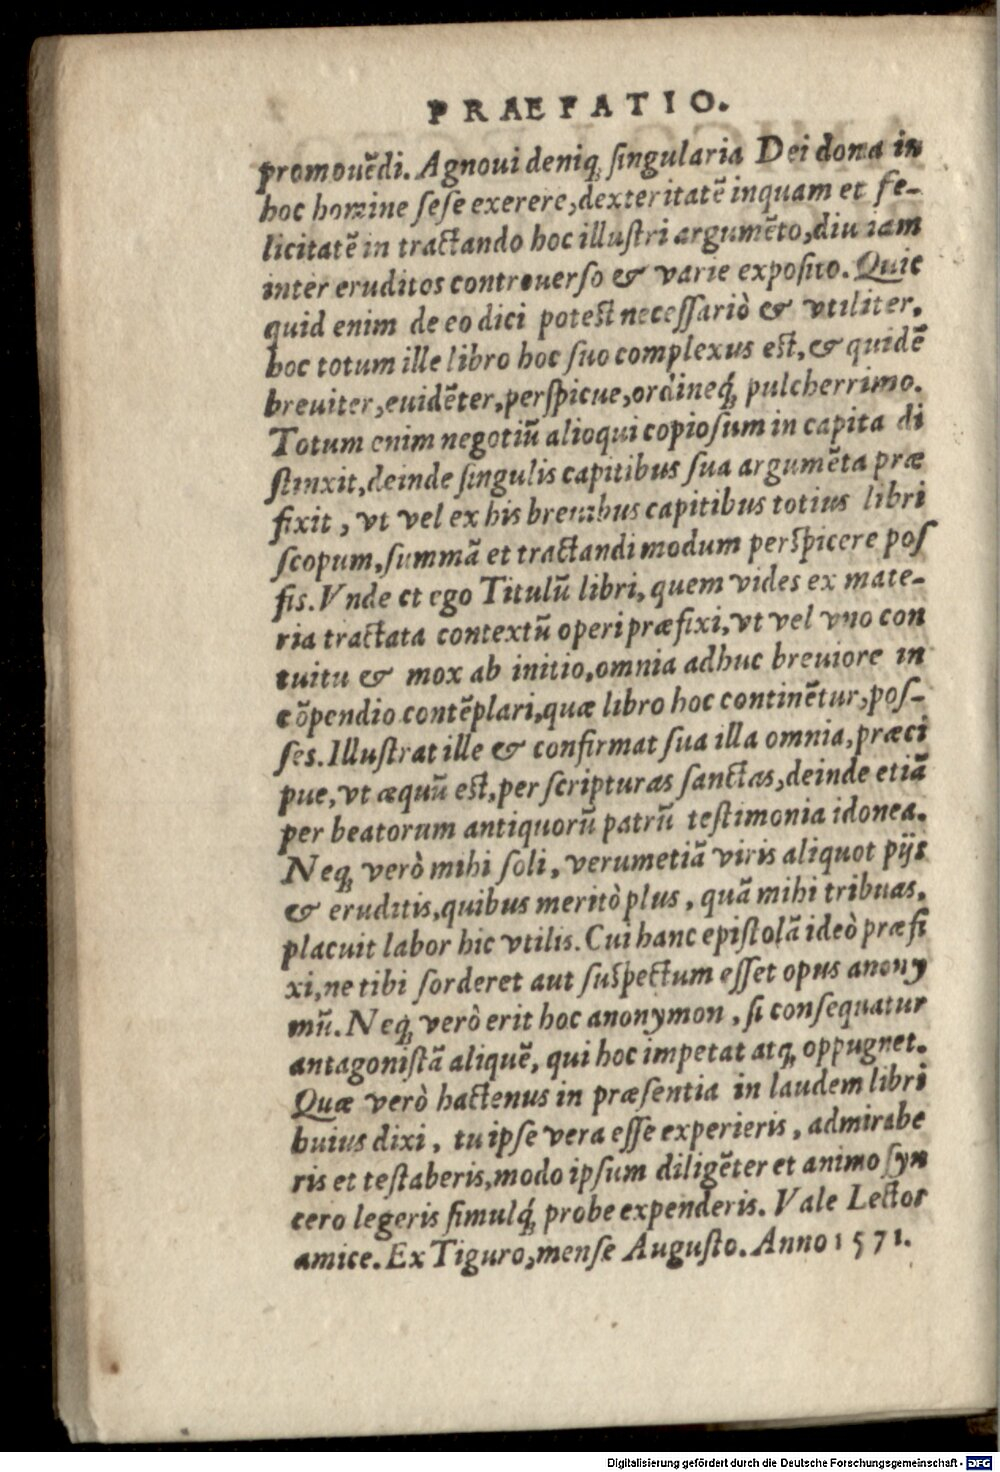 PRAEFATIO.
promouẽdi. Agnoui deniq; singularia Dei dona in
hoc homine sese exerere, dexteritatẽ inquam et fe-
licitatẽ in tractando hoc illustri argumẽto, diu iam
inter eruditos controuerso & varie exposito. Quic
quid enim de eo dici potest necessariò & vtiliter,
hoc totum ille libro hoc suo complexus est, & quidẽ
breuiter, euidẽter, perspicue, ordineq́; pulcherrimo.
Totum enim negotiũ alioqui copiosum in capita di
stinxit, deinde singulis capitibus sua argumẽta præ
fixit, vt vel ex his breuibus capitibus totius libri
scopum, summã et tractandi modum perspicere pos
sis. Vnde et ego Titulũ libri, quem vides ex mate-
ria tractata contextũ operi præfixi, vt vel vno con
tuitu & mox ab initio, omnia adhuc breuiore in
cõpendio contẽplari, quæ libro hoc continẽtur, pos-
ses. Illustrat ille & confirmat sua illa omnia, præci
pue, vt æquũ est, per scripturas sanctas, deinde etiã
per beatorum antiquorũ patrũ testimonia idonea.
Neq; verò mihi soli, verumetiã viris aliquot pijs
& eruditis, quibus meritò plus, quã mihi tribuas,
placuit labor hic vtilis. Cui hanc epistolã ideò præfi
xi, ne tibi sorderet aut suspectum esset opus anony
mũ. Neq; verò erit hoc anonymon, si consequatur
antagonistã aliquẽ, qui hoc impetat atq; oppugnet.
Quæ verò hactenus in præsentia in laudem libri
huius dixi, tu ipse vera esse experieris, admirabe
ris et testaberis, modo ipsum diligẽter et animo syn
cero legeris simulq́; probe expenderis. Vale Lector
amice. Ex Tiguro, mense Augusto. Anno 1571.
Digitalisierung gefördert durch die Deutsche Forschungsgemeinschaft - DFG